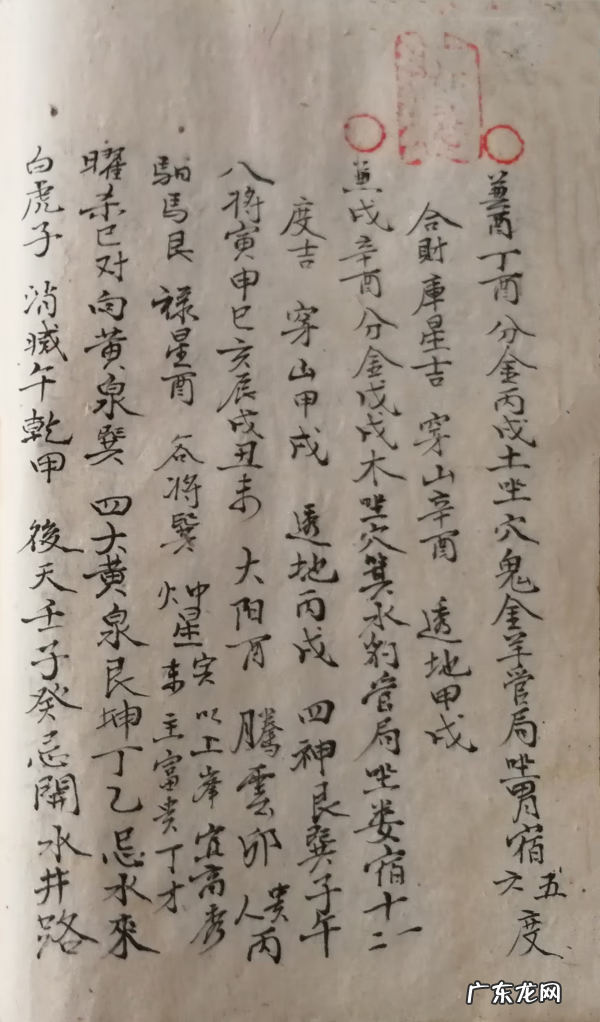 兼酉丁酉分金丙戌土坐穴鬼金羊管局坐胃宿五六度
合財庫星吉 穿山辛酉 透地甲戌
兼戌辛酉分金戊戌木坐穴箕水豹管局坐娄宿十一二
度吉 穿山甲戌 透地丙戌 四神艮巽子午
八将寅申巳亥辰戌丑未 太阳酉 騰雲卯 貴人丙
馹馬艮 禄星酉 谷将巽 灿星東 以上峯宜高秀主富贵丁才
曜杀巳对向黄泉巽 四大黄泉艮坤丁乙忌水來
白虎子 消滅午乾甲 後天壬子癸忌開水井路
广东龙网